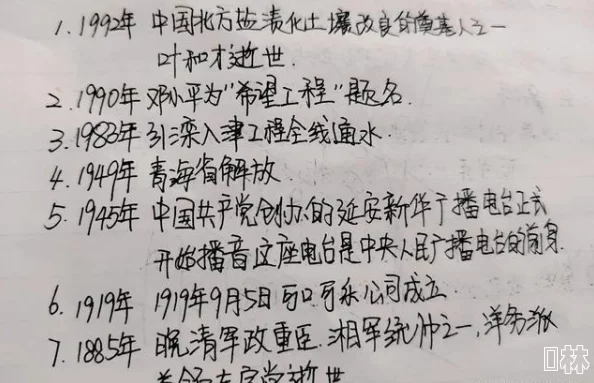 1. 1992年 中国北方盐渍化土壤改良的奠基人之一
叶和才逝世.
2. 1990年 邓小平为"希望工程"题名.
3. 1983年 引滦入津工程全线通水.
4. 1949年 青海省解放.
5. 1945年 中国共产党创办的延安新华广播电台正式
开始播音这座电台是中央人民广播电台的前身.
6. 1919年 1919年9月5日可口可乐公司成立.
7. 1885年 晚清军政重臣.湘军统帅之一,洋务派
首领左宗棠逝世
林